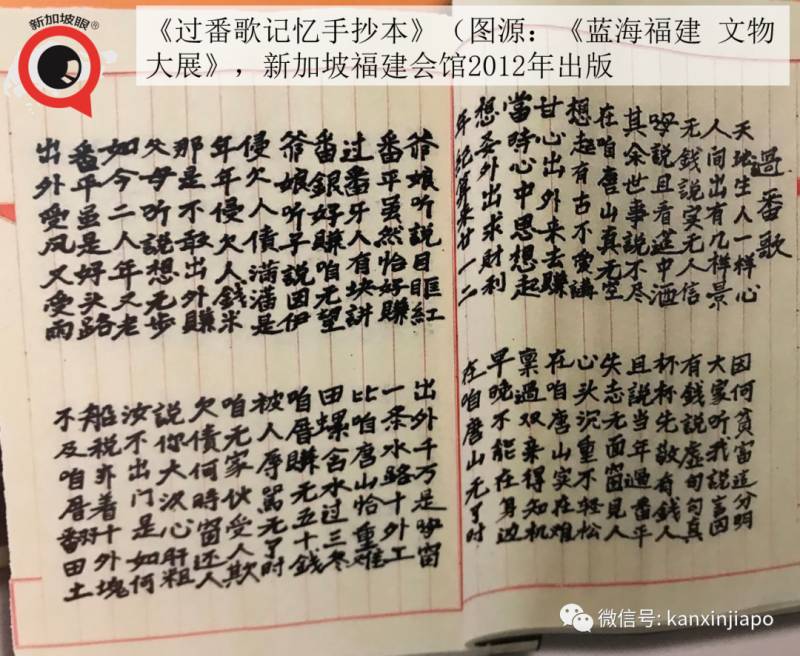 新加坡眼®
《过番歌记忆手抄本》（图源：《蓝海福建 文物
大展》，新加坡福建会馆2012年出版
過番歌
天地生人一样心
人間出有几样景
无錢説实无人信
哼説且看筵中酒
其余世事説不尽
在咱唐山真无空
想起有古不愛講
甘心出外来去賺
當時心中思想起
想娶外出求财利
年纪算来廿一二
因何貧富這分明
大家听我説言因
有錢説虚句句真
杯杯先敬有錢人
且説当年過番平
失志无面窗見人
心头沉重不輕松
在咱唐山实在难
禀過双亲得知机
早晚不能在身边
在咱唐山无了时
爷娘听説目眶紅
番平虽然怡好賺
过番牙人有块讲
番銀好賺咱无望
爷娘听早説因伊
侵欠人債满满是
年年侵欠人錢米
那是不敢出外賺
父母听説想无步
如今二人年又老
番平虽是好头路
出外愛风又愛雨
出外千万是哼窗
一条水路十外工
比咱唐山恰重难
田螺含水过三冬
咱厝賺无五十錢
被人辱駡无了时
咱无家伙受人欺
欠债何時窗还人
説你大沢心肝粗
汝不出门是如何
船税亦着十外塊
不及咱厝番田土
微信号: kanxinjiapo